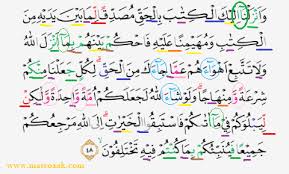 وَأَنزَلْنَا إِلَيْكَ الْكِتَٰبَ بِالْحَقِّ مُصَدِّقًا لِّمَا بَيْنَ يَدَيْهِ مِنَ
الْكِتَٰبِ وَمُهَيْمِنًا عَلَيْهِ فَاحْكُم بَيْنَهُم بِمَا أَنزَلَ اللَّهُ
وَلَا تَتَّبِعْ أَهْوَاءَهُمْ عَمَّا جَاءَكَ مِنَ الْحَقِّ لِكُلٍّ جَعَلْنَا مِنكُمْ
شِرْعَةً وَمِنْهَاجًا وَلَوْ شَاءَ اللَّهُ لَجَعَلَكُمْ أُمَّةً وَٰحِدَةً وَلَٰكِن
لِّيَبْلُوَكُمْ فِي مَا ءَاتَىٰكُمْ فَاسْتَبِقُوا الْخَيْرَٰتِ إِلَى اللَّهِ مَرْجِعُكُمْ
جَمِيعًا فَيُنَبِّئُكُم بِمَا كُنتُمْ فِيهِ تَخْتَلِفُونَ ٤٨